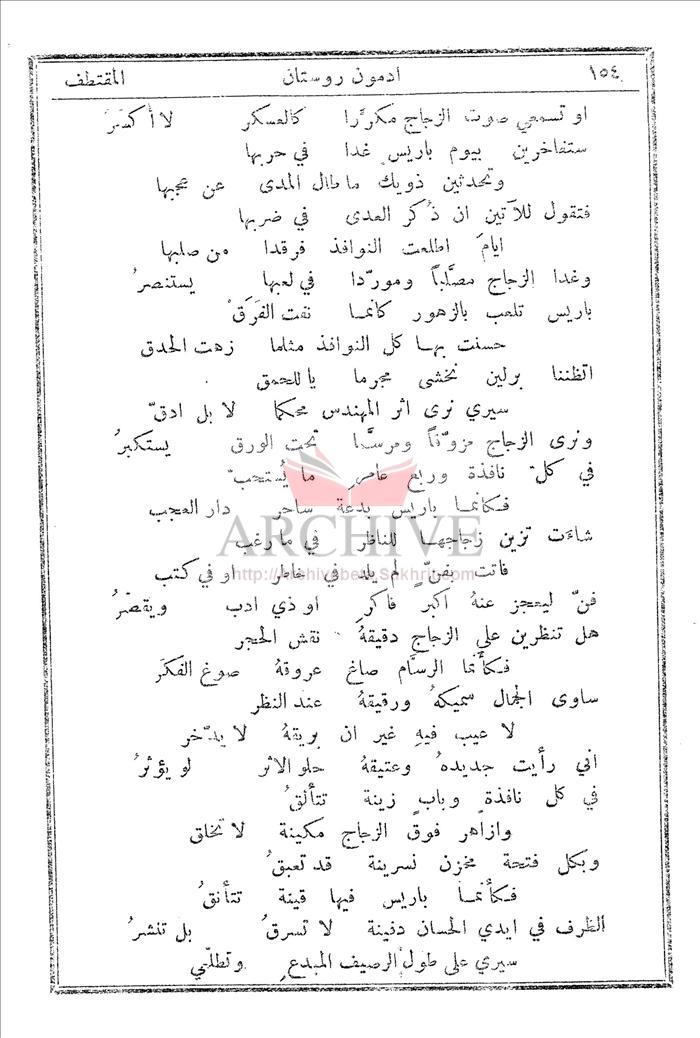 ١٥٤ ادمون روستان المقتطف
او تسمعي صوت الزجاج مكرّرا كالعسكر لا أكسَرُ
ستفاخرين بيوم باريس غدا في حربها
وتحدثين ذويك ما طال المدى عن عجبها
فتقول للآتين ان ذُكر العدى في ضربها
ايامَ اطلعت النوافذ فرقدا من صلبها
وغدا الزجاج مصلَّباً ومورّدا في لعبها يستنصرُ
باريس تلعب بالزهور كأنما نفت الفَرَقْ
حسنت بها كل النوافذ مثلما زهت الحدق
اتظننا برلين نخشى مجرما يا للحمق
سيري نرى اثر المهندس محكما لا بل ادقّ
ونرى الزجاج مزوّقاً ومرسَّما تحت الورق يستكبرُ
في كلّ نافذة وربع عامرٍ ما يُستحبّ
فكأنما باريس بدعة ساحرٍ دار العجب
شاءَت تزين زجاجها للناظر في ما رغب
فاتت بفنٍّ لم يلد في خاطر او في كتب
فنّ ليعجز عنهُ اكبر فاكرٍ او ذي ادب ويقصّرُ
هل تنظرين على الزجاج دقيقهُ نقش الحجر
فكأنما الرسّام صاغ عروقهُ صوغ الفكَر
ساوى الجمال سميكهُ ورقيقهُ عند النظر
لا عيب فيهِ غير ان بريقهُ لا يدّخر
اني رأيت جديدهُ وعتيقهُ حلو الاثر لو يؤثرُ
في كل نافذةٍ وبابٍ زينة تتألقُ
وازاهر فوق الزجاج مكينة لا تخلق
وبكل فتحة مخزن نسرينة قد تعبقُ
فكأنما باريس فيها قينة تتأنقُ
الظرف في ايدي الحسان دفينة لا تسرقُ بل تنشرُ
سيري على طول الرصيف المبدعِ وتطلّعي
ARCHIVE
http://Archivebeta.Sakhrit.com